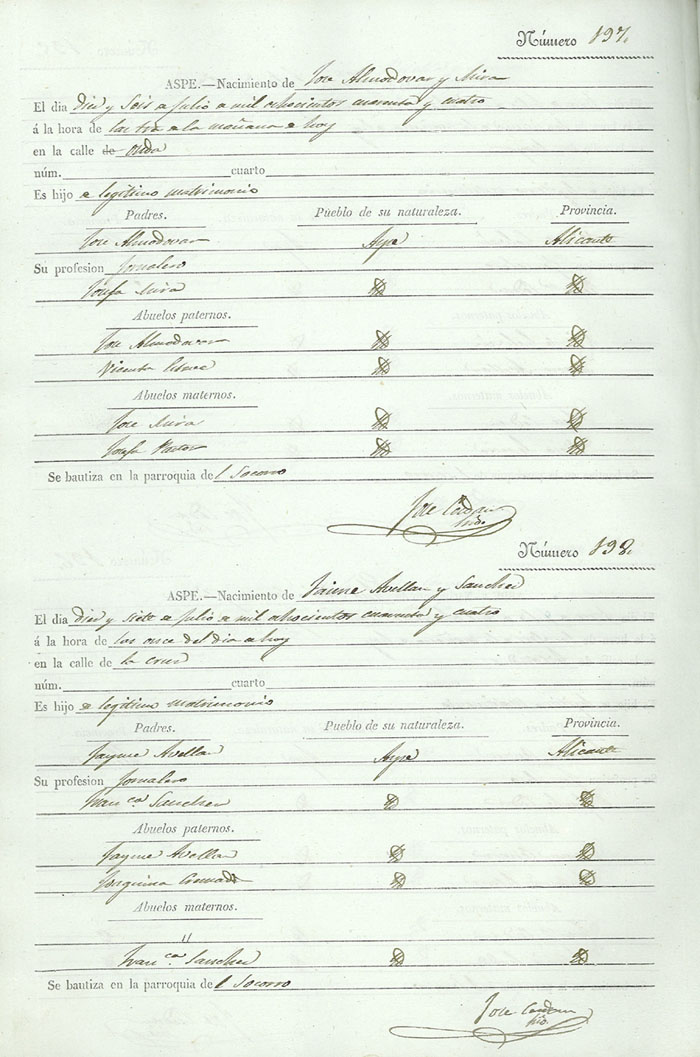 Número 197.
ASPE.—Nacimiento de Jose Almodovar y Mira
El dia diez y Seis de Julio de mil ochocientos cuarenta y cuatro
á la hora de las tres de la mañana de hoy
en la calle de onda
núm. cuarto
Es hijo de legitimo matrimonio
Padres. Pueblo de su naturaleza. Provincia.
Jose Almodovar Aspe Alicante
Su profesion Jornalero
Josefa Mira
Abuelos paternos.
Jose Almodovar
Vicenta
Abuelos maternos.
Jose Mira
Josefa Pastor
Se bautiza en la parroquia del Socorro
Jose
Número 198.
ASPE.—Nacimiento de Jaime Avellan y Sanchez
El dia diez y siete de Julio de mil ochocientos cuarenta y cuatro
á la hora de las once del dia de hoy
en la calle de la cruz
núm. cuarto
Es hijo de legitimo matrimonio
Padres. Pueblo de su naturaleza. Provincia.
Jayme Avellan Aspe Alicante
Su profesion Jornalero
Franca Sanchez
Abuelos paternos.
Jayme Avellan
Joaquina
Abuelos maternos.
"
Franca Sanchez
Se bautiza en la parroquia del Socorro
Jose